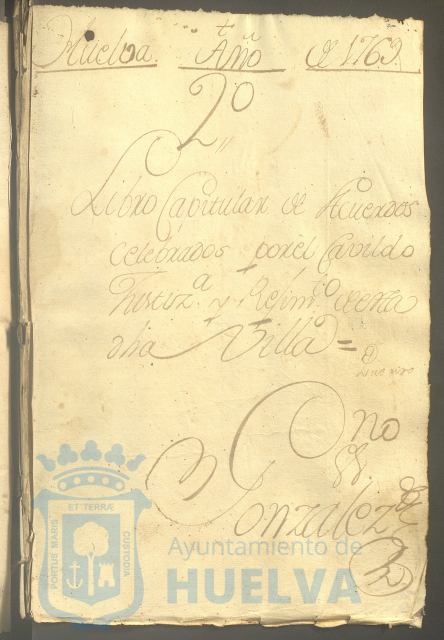 Huelva. Año de 1763.
2º
Libro Capitular de Acuerdos
celebrados por el Cavildo
Justiz.a y Regim.to de esta
dha Villa =
Esno
Gonzalez
ET TERRÆ
PORTUS MARIS
CUSTODIA
Ayuntamiento de
HUELVA